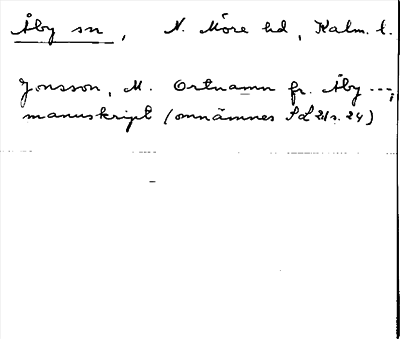 Åby sn, N. Möre hd, Kalm. l.
Jonsson, M. Ortnamn fr. Åby ---,
manuskript (omnämnes SoL 21 s. 24)